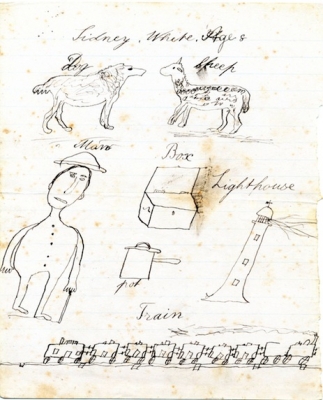 Sidney White. Age 8
Dog sheep
Man Box
Lighthouse
pot
Train